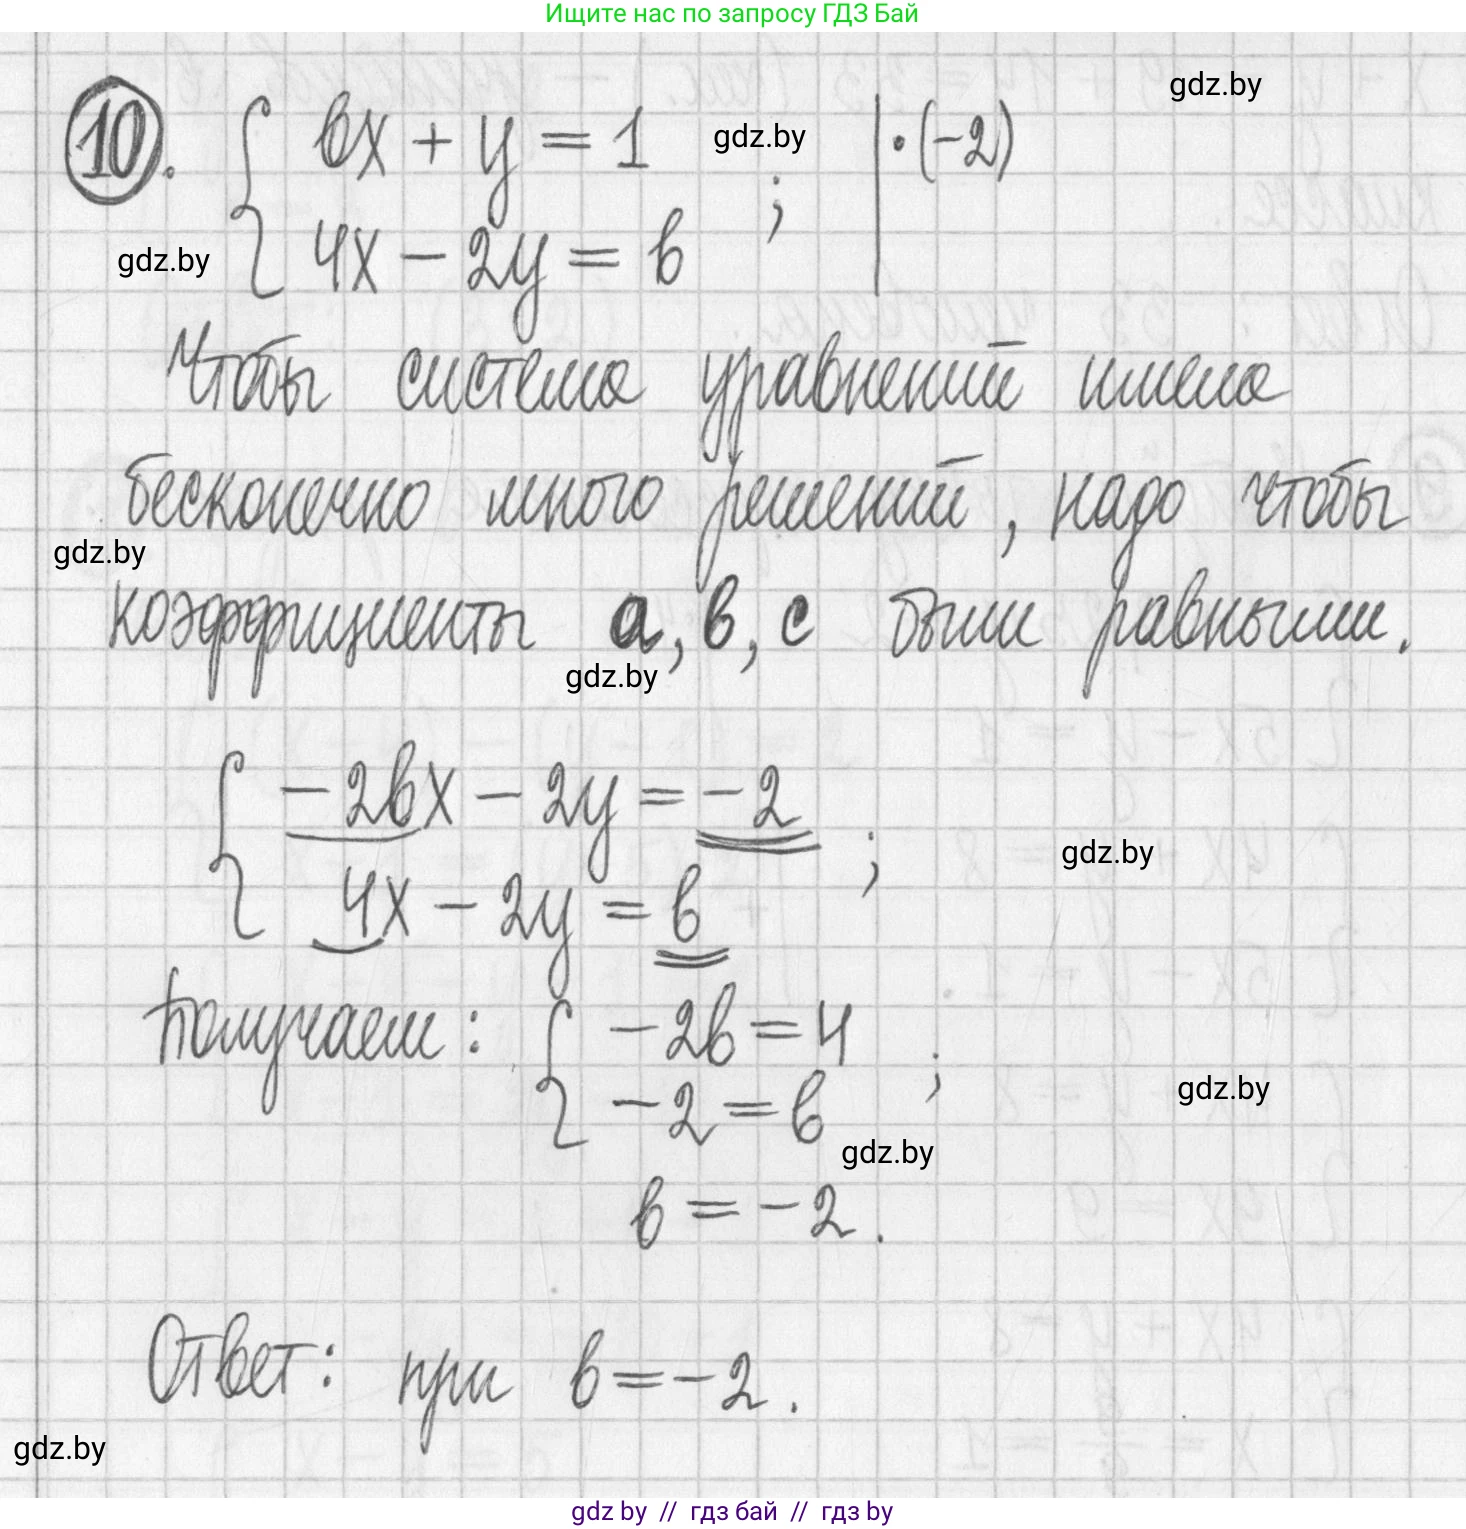 Ищите нас по запросу ГДЗ Бай
gdz.by
10. { вx + y = 1 ; | · (-2)
gdz.by
{ 4x - 2y = в
gdz.by
Чтобы система уравнений имела
бесконечно много решений, надо чтобы
gdz.by
коэффициенты а, в, с были равными.
gdz.by
{ -2вx - 2y = -2 ;
gdz.by
{ 4x - 2y = в
Получаем: { -2в = 4 ;
gdz.by
{ -2 = в
gdz.by
в = -2.
Ответ: при в = -2.
gdz.by
gdz by // гдз бай // гдз by